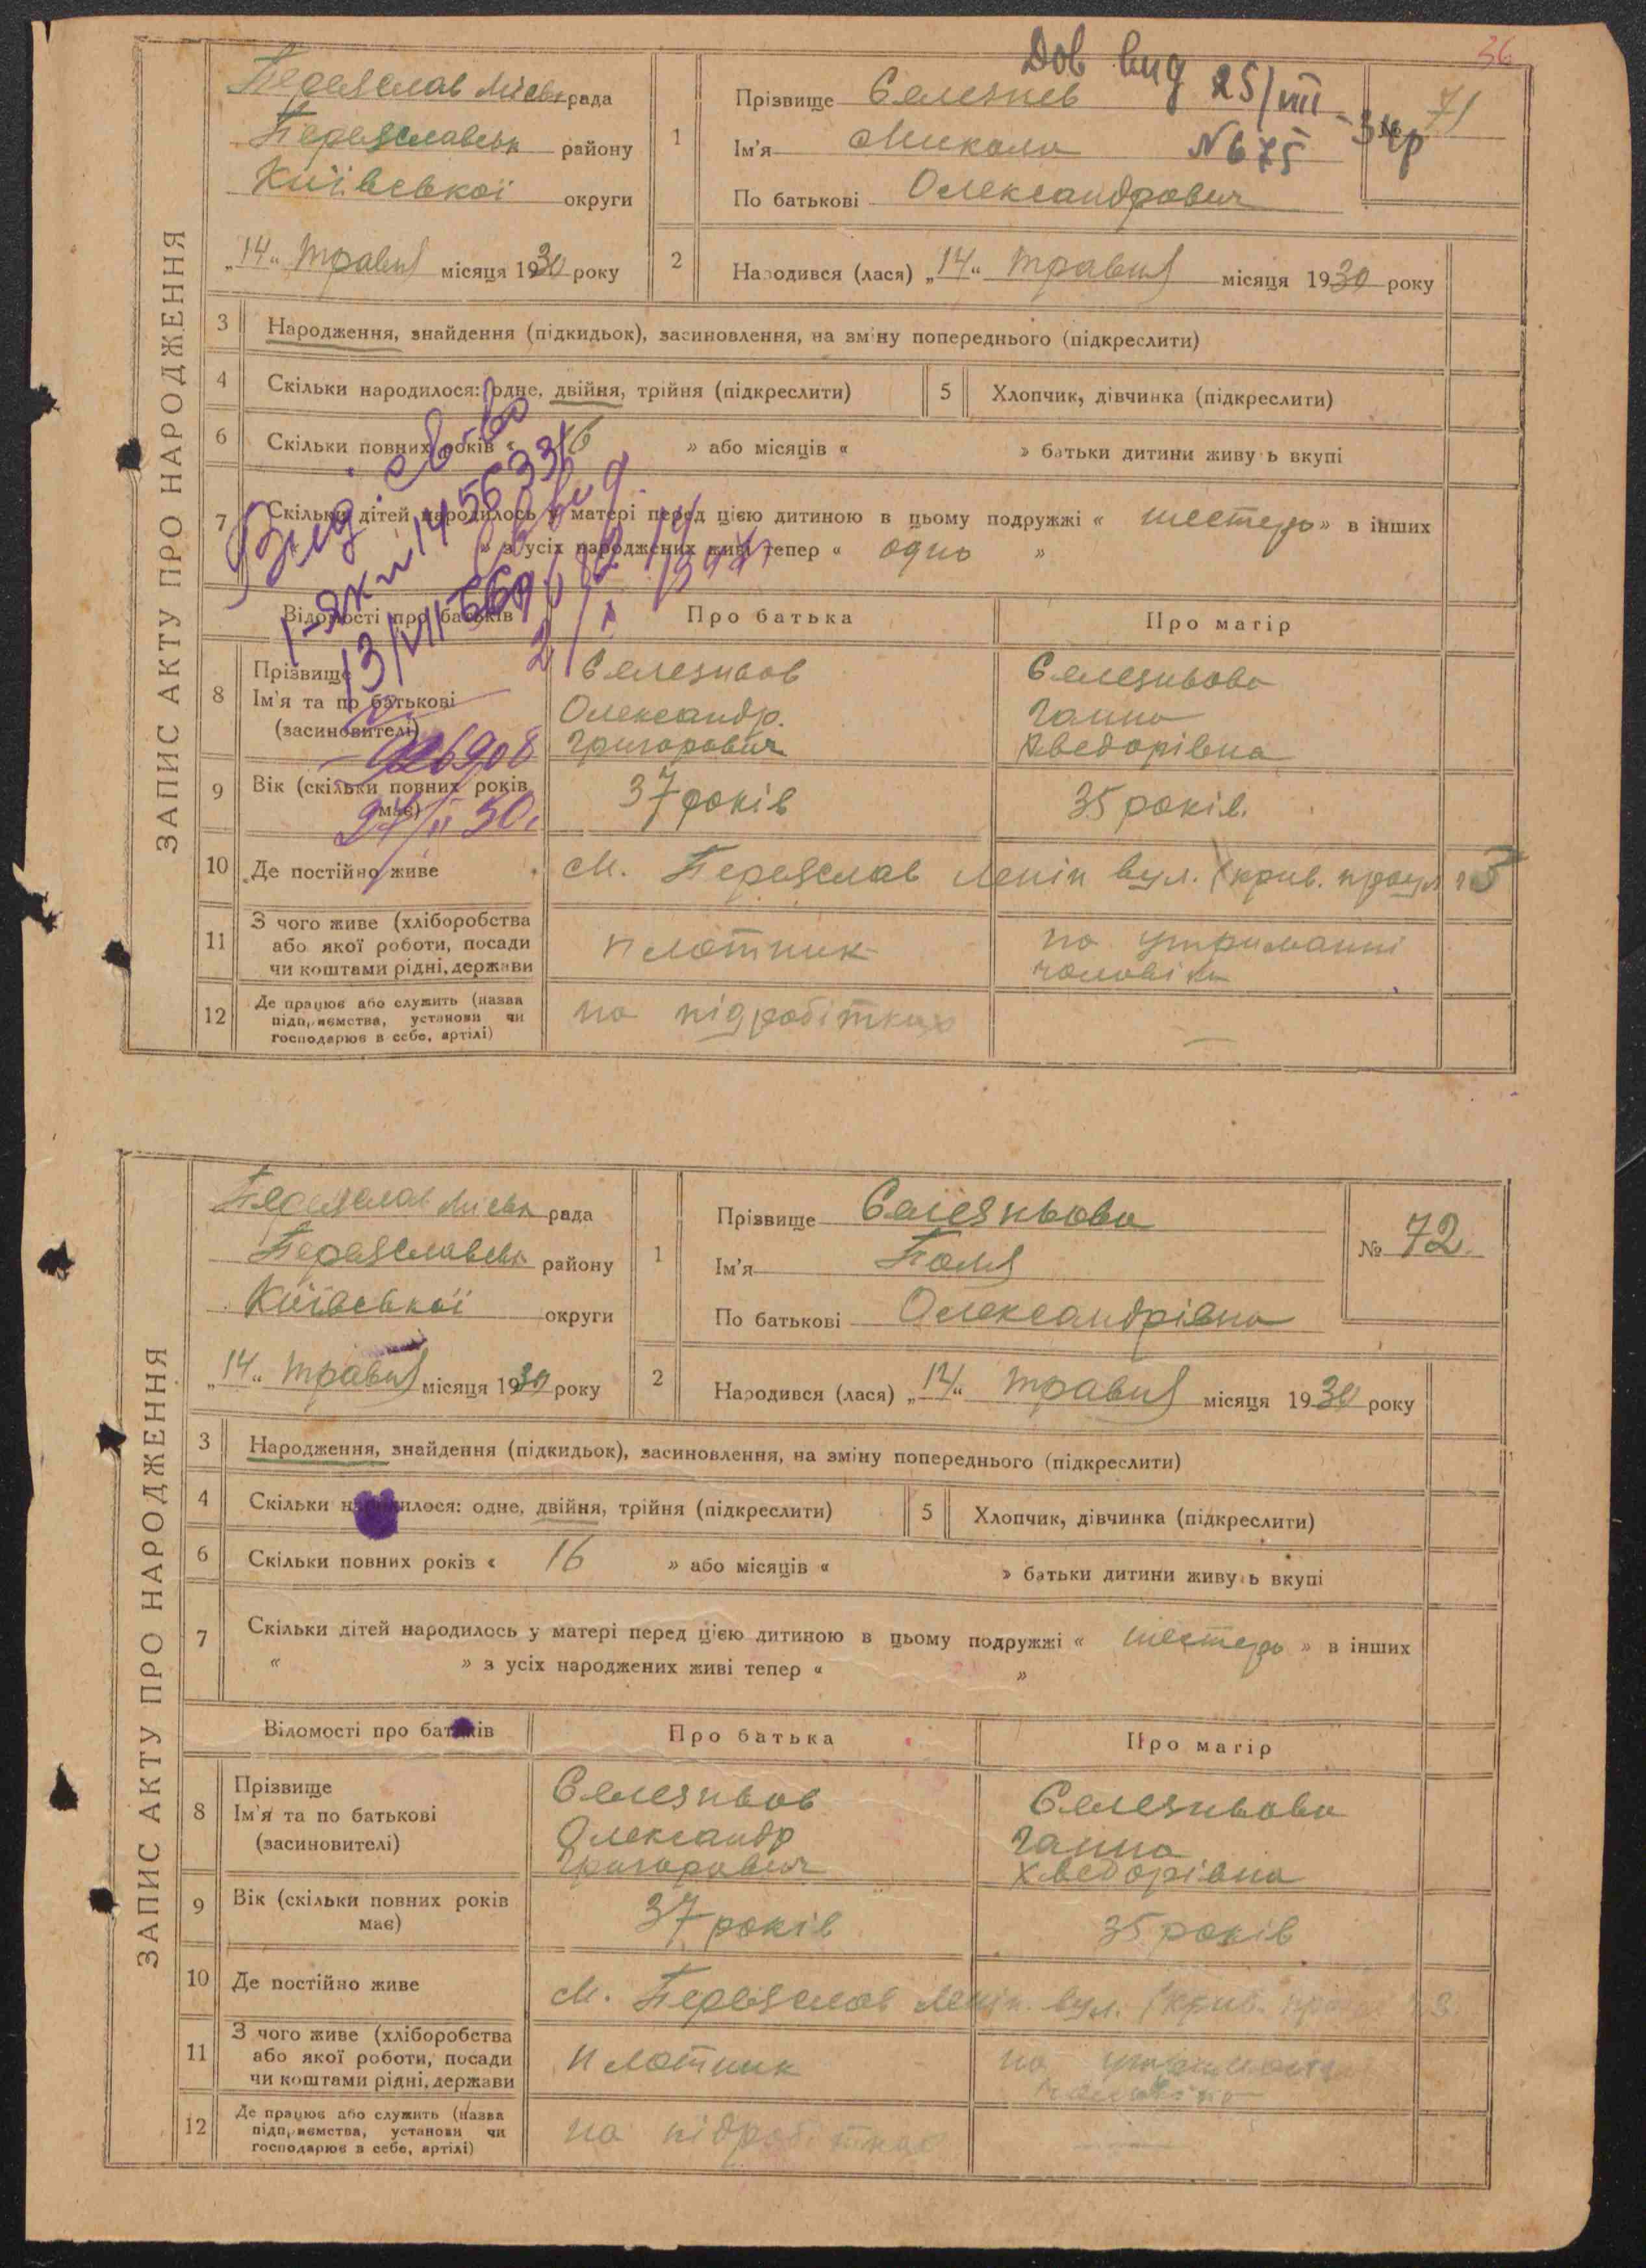 36
ЗАПИС АКТУ ПРО НАРОДЖЕННЯ
Переяслав Міськ рада
Переяславськ району
Київської округи
„14“ травня місяця 1930 року
Дов вид 25/VIII
№675
1 Прізвище Селезнев
Ім'я Микола
По батькові Олександрович
71
2 Народився (лася) „14“ травня місяця 1930 року
3 Народження, знайдення (підкидьок), засиновлення, на зміну попереднього (підкреслити)
4 Скільки народилося: одне, двійня, трійня (підкреслити)
5 Хлопчик, дівчинка (підкреслити)
6 Скільки повних років « 16 » або місяців « » батьки дитини живуть вкупі
7 Скільки дітей народилось у матері перед цією дитиною в цьому подружжі « шестеро » в інших
» з усіх народжених живі тепер « одно »
Відомості про батьків Про батька Про матір
8 Прізвище
Ім'я та по батькові
(засиновителі)
Селезньов
Олександр
Григорович
Селезньова
Ганна
Хведорівна
9 Вік (скільки повних років має) 37 років 35 років.
10 Де постійно живе м. Переяслав Ленін вул. (крив. проул
11 З чого живе (хліборобства
або якої роботи, посади
чи коштами рідні, держави
плотник
на утриманні
чоловіка
12 Де працює або служить (назва
підприємства, установи чи
господарює в себе, артілі)
на підробітках
—
Вид. св-во
1-ЯКИ 1456331
13/VII-66
926908
ЗАПИС АКТУ ПРО НАРОДЖЕННЯ
Переяслав Міськ рада
Переяславськ району
Київської округи
„14“ травня місяця 1930 року
1 Прізвище Селезньова
Ім'я Поля
По батькові Олександрівна
№ 72
2 Народився (лася) „14“ травня місяця 1930 року
3 Народження, знайдення (підкидьок), засиновлення, на зміну попереднього (підкреслити)
4 Скільки народилося: одне, двійня, трійня (підкреслити)
5 Хлопчик, дівчинка (підкреслити)
6 Скільки повних років « 16 » або місяців « » батьки дитини живуть вкупі
7 Скільки дітей народилось у матері перед цією дитиною в цьому подружжі « шестеро » в інших
« » з усіх народжених живі тепер « »
Відомості про батьків Про батька Про матір
8 Прізвище
Ім'я та по батькові
(засиновителі)
Селезньов
Олександр
Григорович
Селезньова
Ганна
Хведорівна
9 Вік (скільки повних років має) 37 років 35 років
10 Де постійно живе м. Переяслав Ленін. вул. (крив.
11 З чого живе (хліборобства
або якої роботи, посади
чи коштами рідні, держави
плотник
на утриманні
чоловіка
12 Де працює або служить (назва
підприємства, установи чи
господарює в себе, артілі)
на підробітках